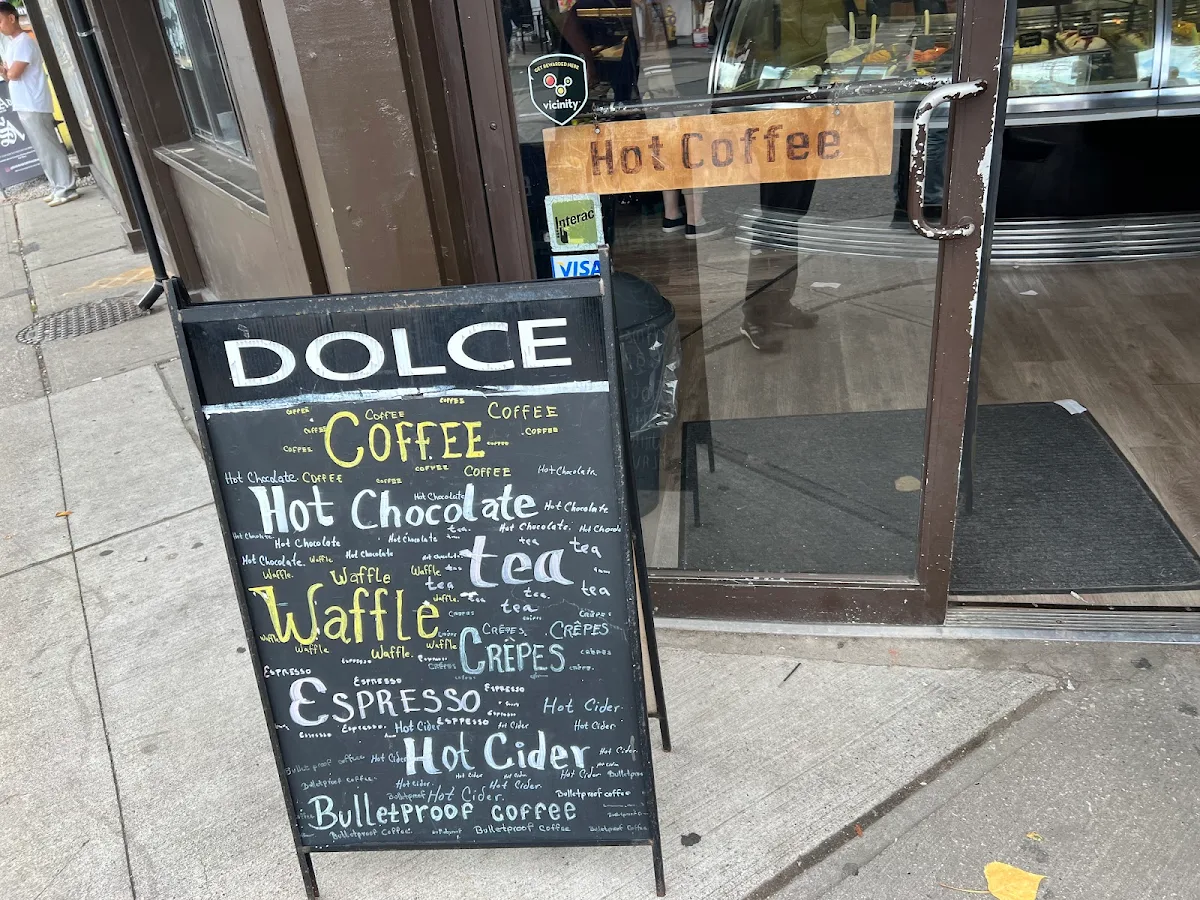 GET REWARDED HERE
vicinity
Hot Coffee
Interac
VISA
DOLCE
COFFEE COFFEE COFFEE COFFEE
COFFEE COFFEE COFFEE
COFFEE COFFEE
COFFEE COFFEE
Hot Chocolate COFFEE COFFEE Hot Chocolate
Hot Chocolate Hot Chocolate Hot Chocolate
Hot Chocolate Hot Chocolate tea. Hot Chocolate.
Hot Chocolate. Hot Chocolate tea tea
Waffle. Waffle Waffle tea
tea tea
Waffle tea. tea
Waffle. tea
Waffle Waffle. Waffle CRÊPES. CRÊPES
CRÈPES
ESPRESSO ESPRESSO
ESPRESSO ESPRESSO Hot Cider
Espresso. Hot Cider ESPRESSO Hot Cider Hot Cider
Hot Cider Hot Cider Hot Cider
Bulletproof coffee. Hot cider Hot Cider. Hot Cider Bulletproof
Bulletproof Hot Cider. Bulletproof coffee
Bulletproof coffee
Bulletproof Coffee. Bulletproof Coffee Bulletproof Coffee